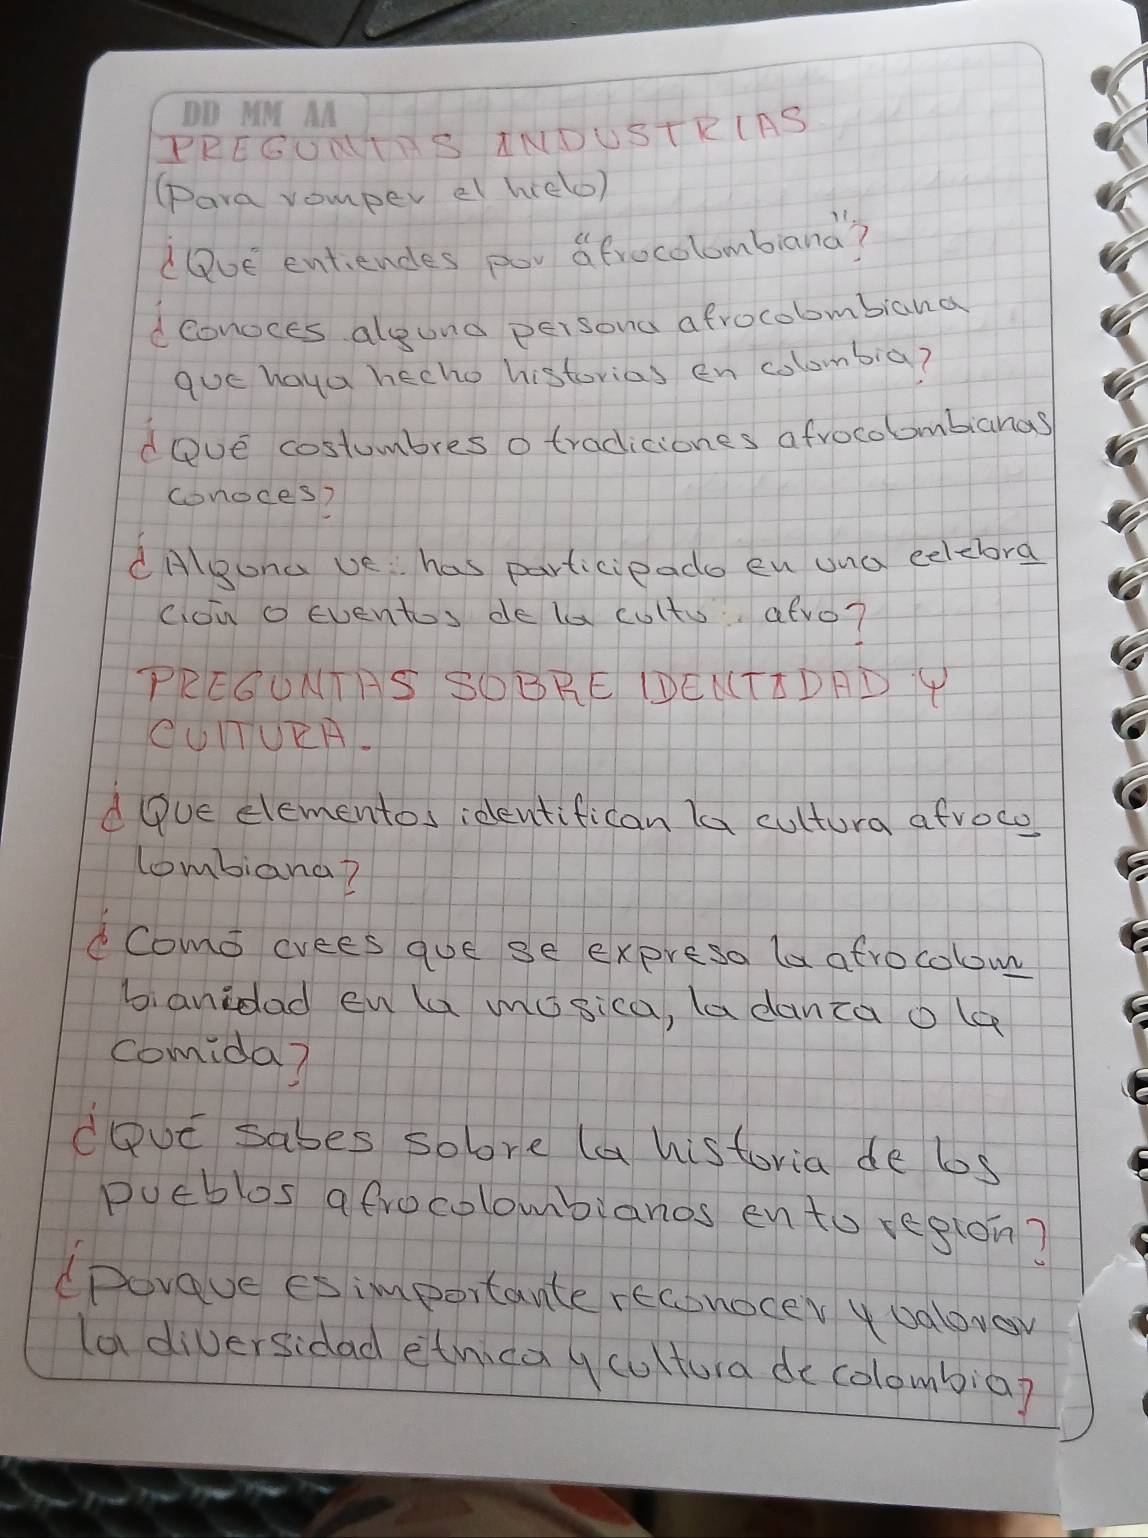 DD MM AA
PREGUNTAS INDUSTRIAS
(Para romper el hielo)
¿Qué entiendes por "afrocolombiana"?
¿conoces alguna persona afrocolombiana
que haya hecho historias en colombia?
¿Qué costumbres o tradiciones afrocolombianas
conoces?
¿Alguna ve has participado en una celebra
ción o eventos de la cultu afro?
PREGUNTAS SOBRE IDENTIDAD Y
CULTURA.
¿Que elementos identifican la cultura afroco
lombiana?
¿Comó crees que se expresa la afrocolom
bianidad en la musica, la danza o la
comida?
¿Qué sabes sobre la historia de los
pueblos afrocolombianos en tu región?
¿Porque es importante reconocer y valorar
la diversidad etnica y cultura de colombia?